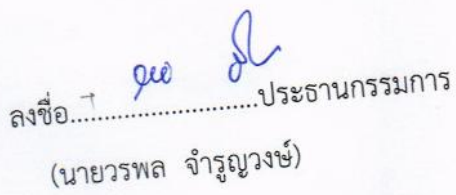 ลงชื่อ............................ประธานกรรมการ
(นายวรพล จำรูญวงษ์)